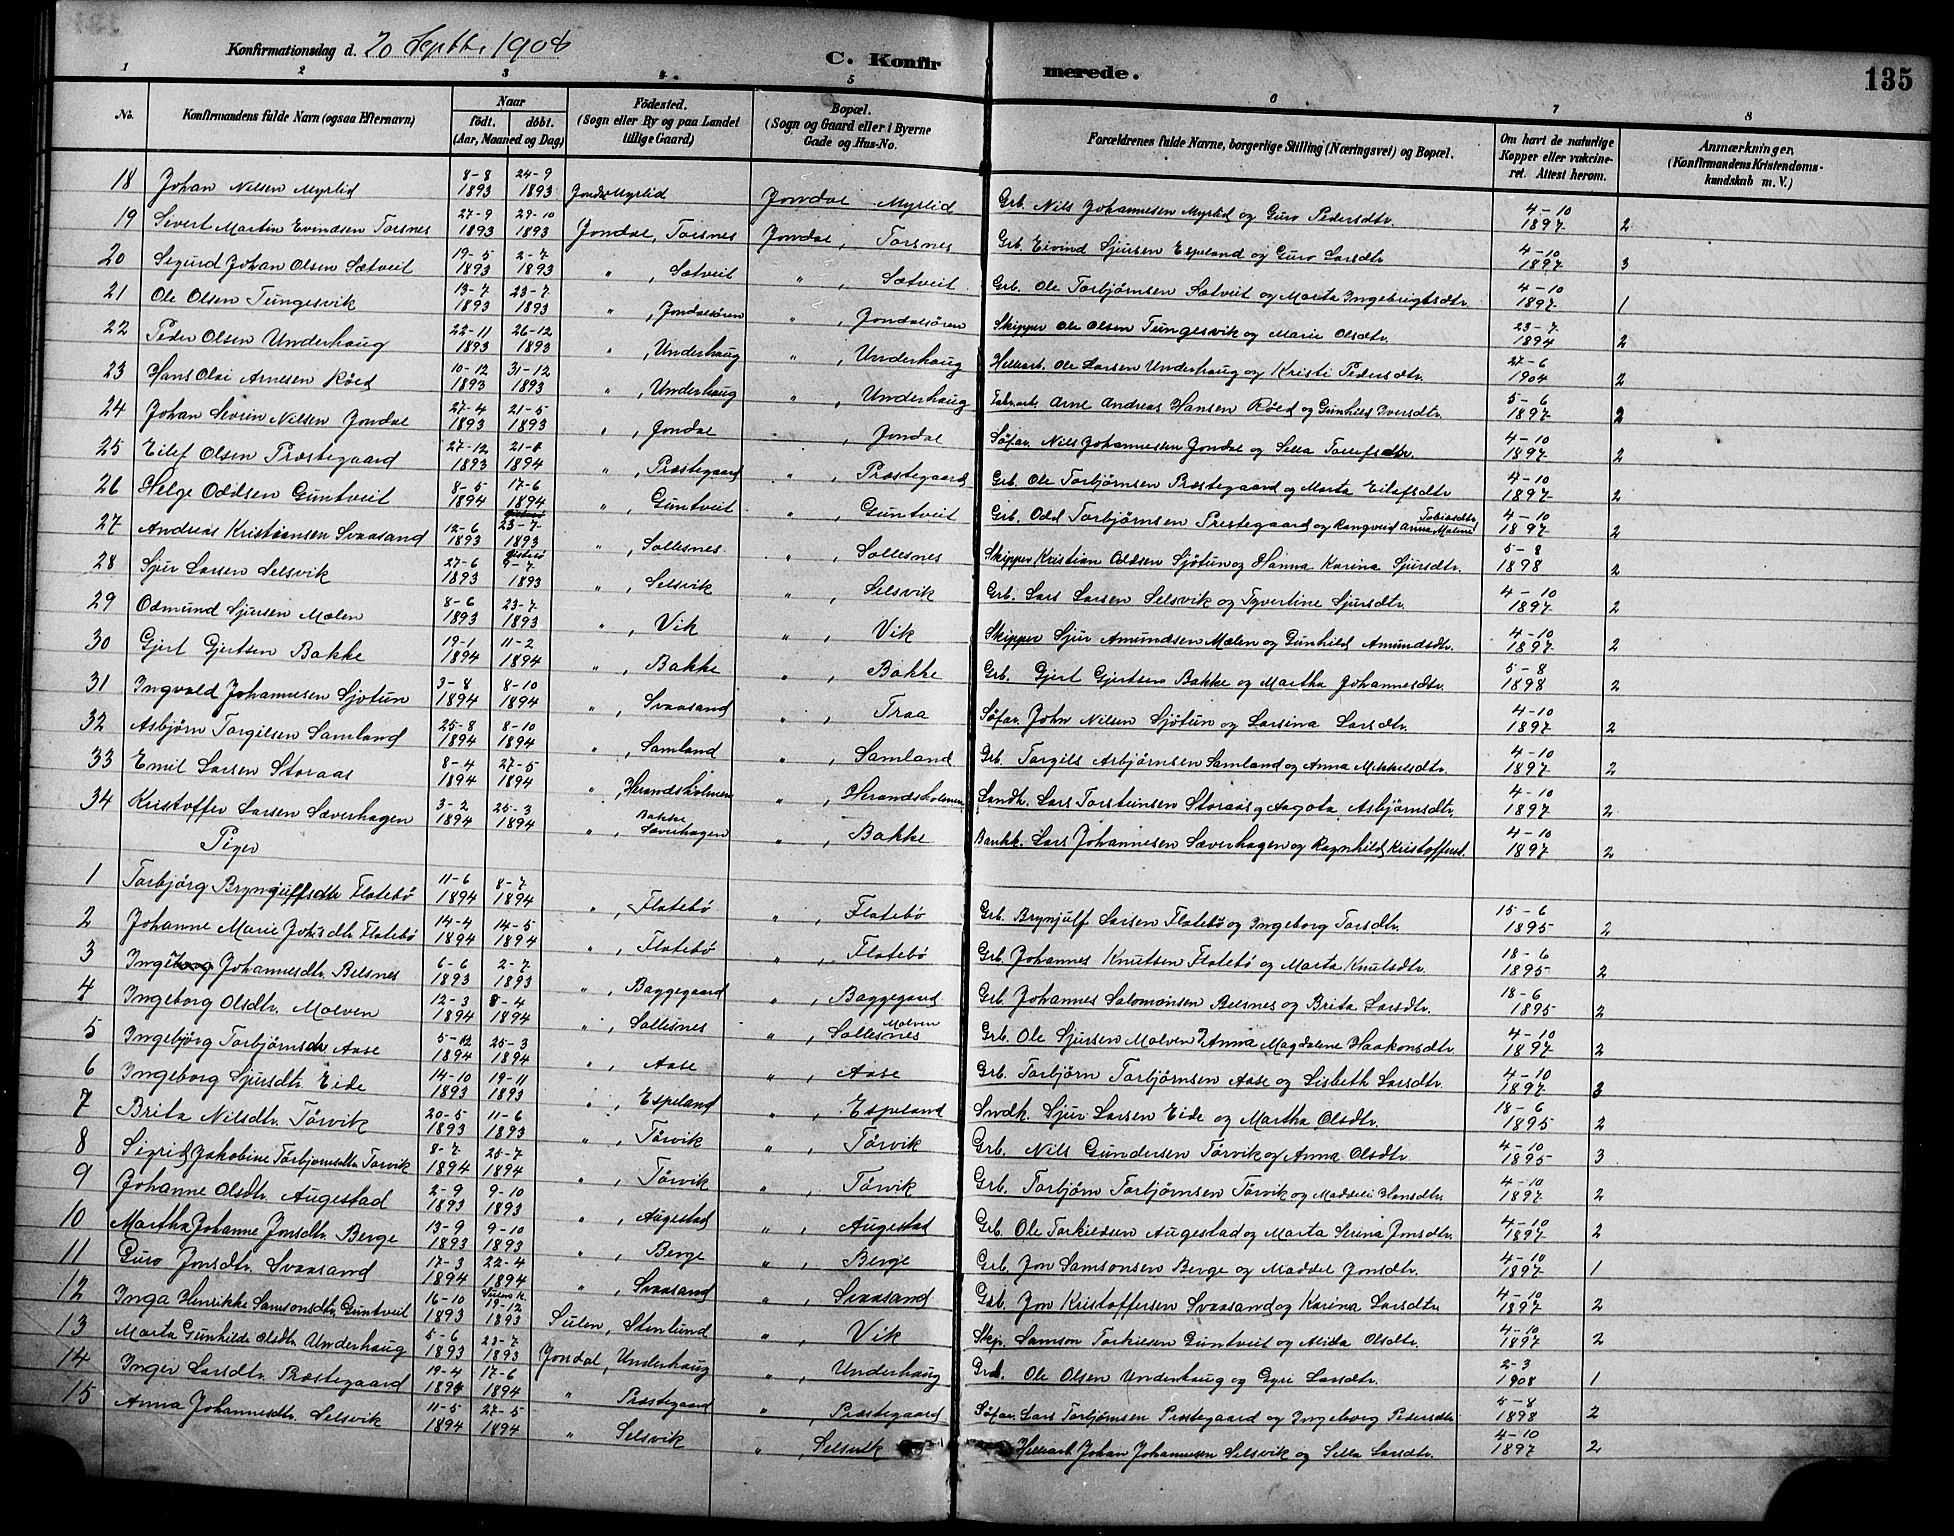 Konfirmationsdag d. 20 Septbr. 1908
C. Konfirmerede.
135
1 2 3 4 5 6 7 8
No. Konfirmandens fulde Navn (ogsaa Efternavn) Naar født. døbt. (Aar, Maaned og Dag) Födested. (Sogn eller By og paa Landet tillige Gaard) Bopæl. (Sogn og Gaard eller i Byerne Gade og Hus-No. Forældrenes fulde Navne, borgerlige Stilling (Næringsvei) og Bopæl. Om havt de naturlige Kopper eller vakcineret. Attest herom. Anmærkninger. (Konfirmandens Kristendomskundskab m. V.)
18 Johan Nilsen Myrlid 8-8 1893 24-9 1893 Jondal Myrlid Jondal Myrlid Grb. Nils Johannesen Myrlid og Guro Pedersdtr. 4-10 1897 2
19 Sivert Martin Evindsen Torsnes 27-9 1893 29-10 1893 Jondal, Torsnes Jondal, Torsnes Grb. Eivind Sjursen Espeland og Guro Larsdtr 4-10 1897 3
20 Sigurd Johan Olsen Sætveit 19-5 1893 2-7 1893 " , Sætveit " , Sætveit Grb. Ole Torbjørnsen Sætveit og Marta Ingebrigtsdtr. 4-10 1897 1
21 Ole Olsen Tungesvik 13-7 1893 23-7 1893 " , Jondalsören " , Jondalsören Skipper Ole Olsen Tungesvik og Marie Olsdtr. 23-7 1894 2
22 Peder Olsen Underhaug 22-11 1893 26-12 1893 " , Underhaug " , Underhaug Ole Larsen Underhaug og Kristi Pedersdtr. 27-6 1904 2
23 Hans Olai Arnesen Röed 10-12 1893 31-12 1893 " , Underhaug " , Underhaug Fabr.arb. Arne Andreas Hansen Röed og Gunhild Iversdtr. 5-6 1897 2
24 Johan Sevrin Nilsen Jondal 27-4 1893 21-5 1893 " , Jondal " , Jondal Söfar. Nils Johannesen Jondal og Silla Tollefsdtr. 4-10 1897 2
25 Eilef Olsen Præstegaard 27-12 1893 1894 " , Præstegaard " , Præstegaard Grb. Ole Torbjørnsen Præstegaard og Marta Eilefsdtr 4-10 1897 2
26 Helge Oddsen Guntveit 8-5 1894 17-6 1894 " , Guntveit " , Guntveit Grb. Odd Torbjørnsen Prestegaard og Anna Malene Tobiasdtr. 4-10 1897 2
27 Andreas Kristiansen Svaasand 12-6 1893 23-7 1893 " , Sollesnes " , Sollesnes Skipper Kristian Oddsen Sjötun og Hanna Karina Sjursdtr. 5-8 1898 2
28 Sjur Larsen Selsvik 27-6 1893 9-7 1893 " , Selsvik " , Selsvik Grb. Lars Larsen Selsvik og Syvertine Sjursdtr. 4-10 1897 2
29 Odmund Sjursen Mælen 8-6 1893 23-7 1893 " , Vik " , Vik Skipper Sjur Amundsen Mælen og Gunhild Amundsdtr. 4-10 1897 2
30 Gjert Gjertsen Bakke 19-1 1894 11-2 1894 " , Bakke " , Bakke Grb. Gjert Gjertsen Bakke og Martha Johannesdtr. 5-8 1898 2
31 Ingvald Johannesen Sjötun 3-8 1894 8-10 1894 " , Svaasand " , Traa Söfar. John Nilsen Sjötun og Larsina Larsdtr. 4-10 1897 2
32 Asbjørn Torgilsen Samland 25-8 1894 8-10 1894 " , Samland " , Samland Grb. Torgils Asbjørnsen Samland og Anna Mikkelsdtr. 4-10 1897 2
33 Emil Larsen Storaas 8-4 1894 27-5 1894 " , Herandsholmen " , Herandsholmen Landh. Lars Torsteinsen Storaas og Aagota Asbjørnsdtr. 4-10 1897 2
34 Kristoffer Larsen Sæverhagen 3-2 1894 25-3 1894 " , Bakke Sæverhagen " , Bakke Lars Johannesen Sæverhagen og Ragnhild Kristoffersd. 4-10 1897 2
Piger
1 Torbjörg Brynjulfsdtr Flatebö 11-6 1894 8-7 1894 " , Flatebö " , Flatebö Grb. Brynjulf Larsen Flatebö og Ingeborg Torsdtr. 15-6 1895 2
2 Johanne Marie Johsdtr Flatebö 14-4 1894 14-5 1894 " , Flatebö " , Flatebö Grb. Johannes Knutsen Flatebö og Marta Knutsdtr. 18-6 1895 2
3 Johannesdtr. Belsnes 6-6 1893 2-7 1893 " , Baggegaard " , Baggegaard Grb. Johannes Salomonsen Belsnes og Brita Larsdtr. 18-6 1895 2
4 Ingeborg Olsdtr. Molven 12-3 1894 8-4 1894 " , Sollesnes " , Sollesnes Molven Grb. Ole Sjursen Molven Anna Magdalene Haakonsdtr. 4-10 1897 2
5 Ingebjörg Torbjørnsdr Aase 5-12 1894 25-3 1894 " , Aase " , Aase Grb. Torbjörn Torbjörnsen Aase og Lisbeth Larsdtr. 4-10 1897 3
6 Ingeborg Sjursdtr Eide 14-10 1893 19-11 1893 " , Espeland " , Espeland Sjur Larsen Eide og Martha Olsdtr. 18-6 1895 2
7 Brita Nilsdtr. Törvik 20-5 1893 11-6 1893 " , Törvik " , Törvik Grb. Nils Gundersen Törvik og Anna Olsdtr. 4-10 1895 3
8 Sigrid Jakobine Törbjornsdtr Torvik 8-7 1894 25-7 1894 " , Törvik " , Törvik Grb. Torbjörn Torbjörnsen Törvik og Maddeli Hansdtr. 4-10 1897 2
9 Johanne Olsdtr. Augestad 2-9 1893 9-10 1893 " , Augestad " , Augestad Grb. Ole Torkildsen Augestad og Marta Serina Jonsdtr. 4-10 1897 2
10 Martha Johanne Jonsdtr. Berge 13-9 1893 9-10 1893 " , Berge " , Berge Grb. Jon Samsonsen Berge og Maddel Jonsdtr. 4-10 1897 1
11 Guro Jonsdtr. Svaasand 17-3 1894 22-4 1894 " , Svaasand " , Svaasand Grb. Jon Kristoffersen Svaasand og Karina Larsdtr. 4-10 1897 2
12 Inga Henrikke Samsonsdtr. Guntveit 16-10 1893 Sulens K. 19-12 1893 Sulen, Stenlund " , Vik Skp. Samson Torkilsen Guntveit og Alida Olsdtr. 4-10 1897 2
13 Marta Gunhilde Olsdtr Underhaug 5-6 1893 23-7 1893 Jondal, Underhaug " , Underhaug Grb. Ole Olsen Underhaug og Gyri Larsdtr. 2-3 1908 1
14 Inger Larsdtr. Præstegaard 19-4 1894 17-6 1894 " Præstegaard " , Præstegaard Söfar. Lars Torbjörnsen Præstegaard og Ingeborg Pedersdtr 5-8 1898 2
15 Anna Johannesdtr. Selsvik 11-5 1894 27-5 1894 " , Selsvik " , Selsvik Johan Johannesen Selsvik og Silla Larsdtr. 4-10 1897 2